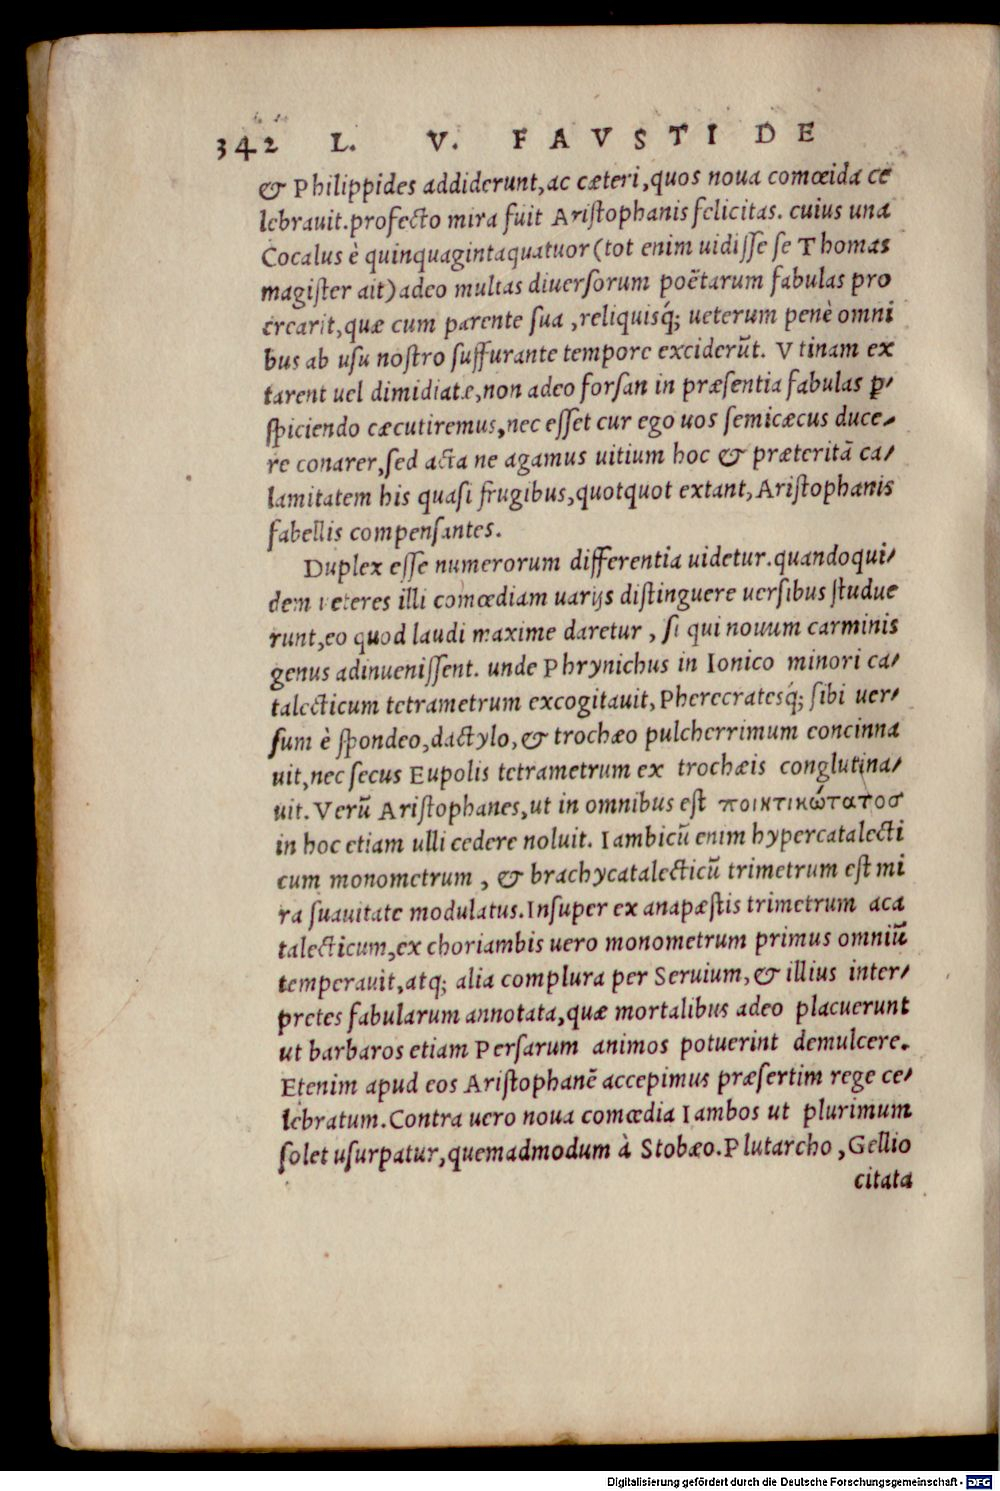 342 L. V. FAVSTI DE
& Philippides addiderunt, ac cæteri, quos noua comœida ce
lebrauit. profecto mira fuit Aristophanis felicitas. cuius una
Cocalus è quinquagintaquatuor (tot enim uidisse se Thomas
magister ait) adeo multas diuersorum poëtarum fabulas pro
crearit, quæ cum parente sua, reliquisq́; ueterum penè omni
bus ab usu nostro suffurante tempore exciderũt. Vtinam ex
tarent uel dimidiatæ, non adeo forsan in præsentia fabulas ꝑ-
spiciendo cæcutiremus, nec esset cur ego uos semicæcus duce-
re conarer, sed acta ne agamus uitium hoc & præteritã ca-
lamitatem his quasi frugibus, quotquot extant, Aristophanis
fabellis compensantes.
Duplex esse numerorum differentia uidetur. quandoqui-
dem ueteres illi comœdiam uarijs distinguere uersibus studue
runt, eo quod laudi maxime daretur, si qui nouum carminis
genus adinuenissent. unde Phrynichus in Ionico minori ca-
talecticum tetrametrum excogitauit, Pherecratesq́; sibi uer-
sum è spondeo, dactylo, & trochæo pulcherrimum concinna
uit, nec secus Eupolis tetrametrum ex trochæis conglutina-
uit. Verũ Aristophanes, ut in omnibus est ποικτικώτατοσ
in hoc etiam ulli cedere noluit. Iambicũ enim hypercatalecti
cum monometrum, & brachycatalecticũ trimetrum est mi
ra suauitate modulatus. Insuper ex anapæstis trimetrum aca
talecticum, ex choriambis uero monometrum primus omniũ
temperauit, atq; alia complura per Seruium, & illius inter-
pretes fabularum annotata, quæ mortalibus adeo placuerunt
ut barbaros etiam Persarum animos potuerint demulcere.
Etenim apud eos Aristophanẽ accepimus præsertim rege ce-
lebratum. Contra uero noua comœdia Iambos ut plurimum
solet usurpatur, quemadmodum à Stobæo. Plutarcho, Gellio
citata
Digitalisierung gefördert durch die Deutsche Forschungsgemeinschaft - DFG